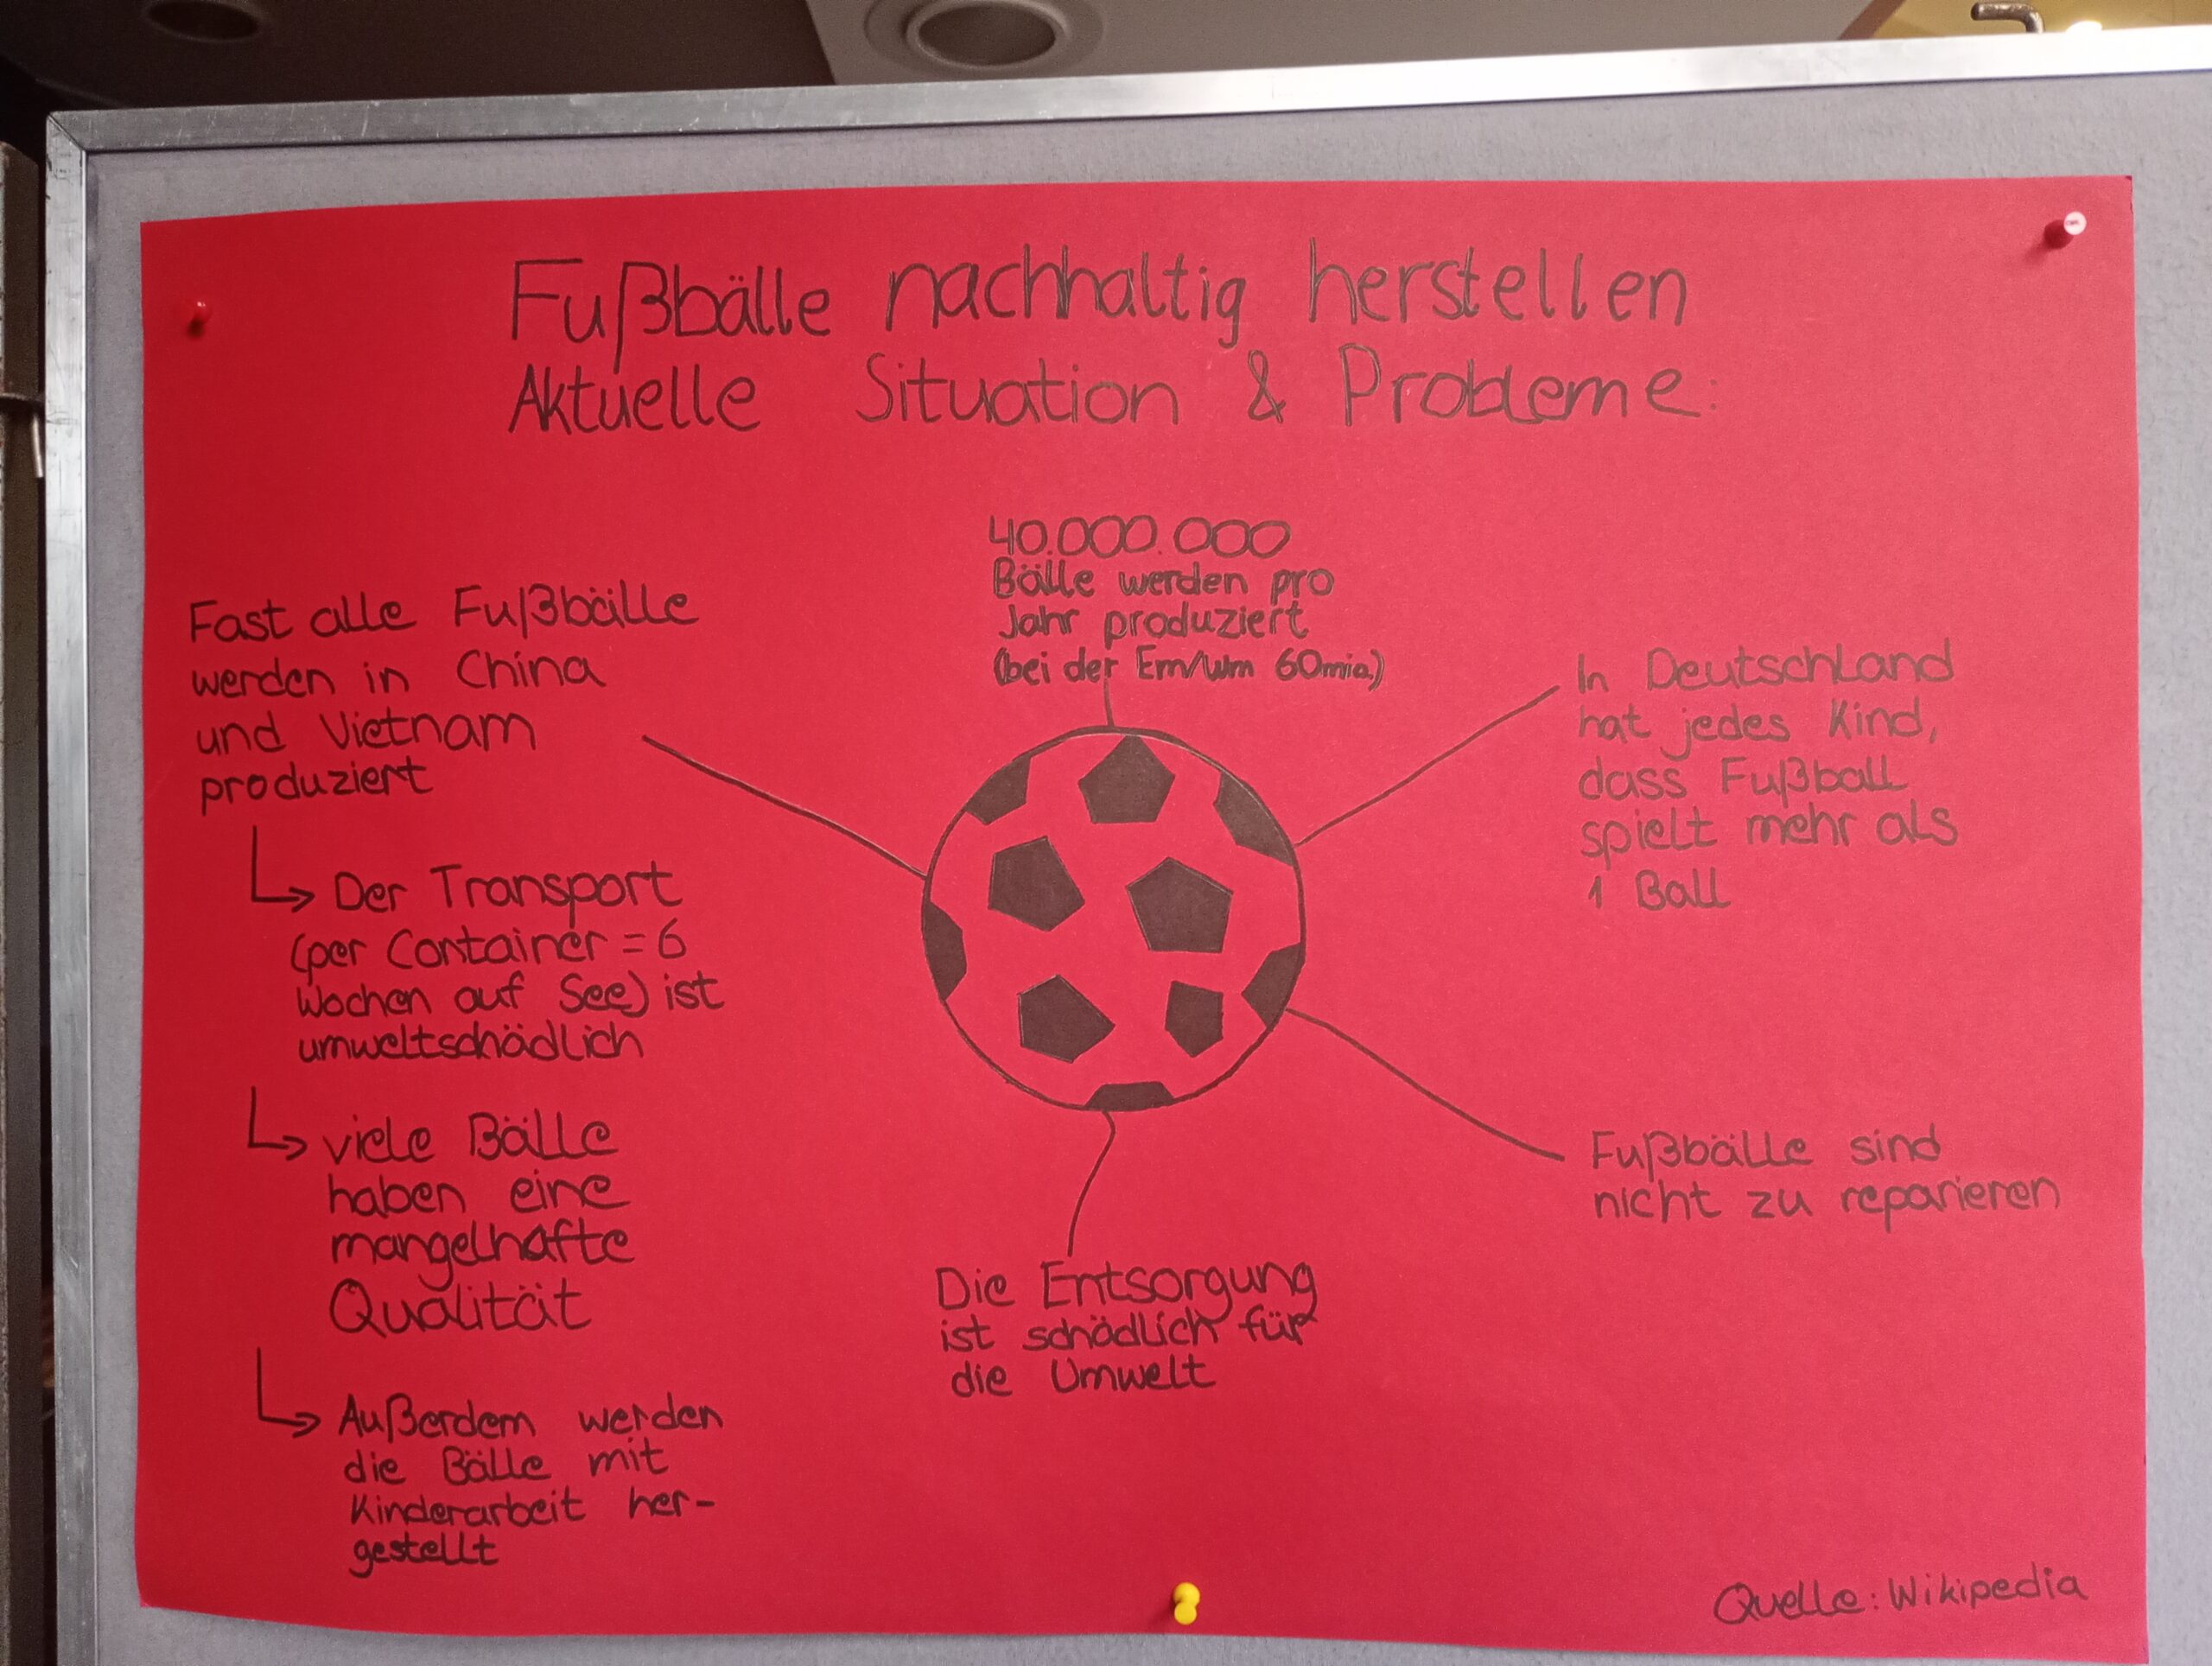 Fußbälle nachhaltig herstellen
Aktuelle Situation & Probleme:
40.000.000
Bälle werden pro
Jahr produziert
(bei der Em/wm 60mio.)
Fast alle Fußbälle
werden in China
und Vietnam
produziert
Der Transport
(per Container = 6
Wochen auf See) ist
umweltschädlich
viele Bälle
haben eine
mangelhafte
Qualität
Außerdem werden
die Bälle mit
Kinderarbeit her-
gestellt
In Deutschland
hat jedes Kind,
dass Fußball
spielt mehr als
1 Ball
Fußbälle sind
nicht zu reparieren
Die Entsorgung
ist schädlich für
die Umwelt
Quelle: Wikipedia